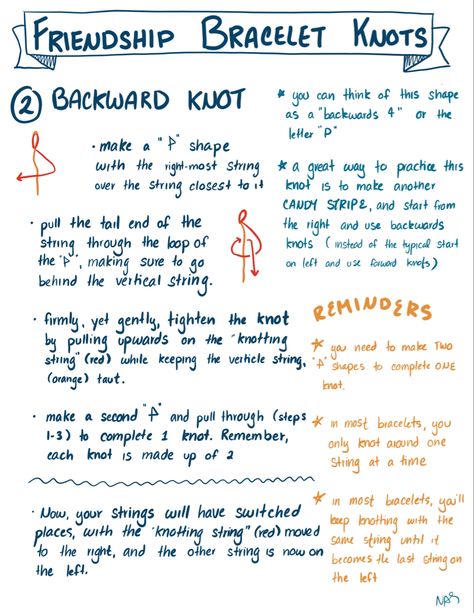 FRIENDSHIP BRACELET KNOTS
2 BACKWARD KNOT
• make a "P" shape
with the right-most string
over the string closest to it
• pull the tail end of the
string through the loop of
the "P", making sure to go
behind the vertical string.
• firmly, yet gently, tighten the knot
by pulling upwards on the "knotting
string" (red) while keeping the verticle string,
(orange) taut.
• make a second "P" and pull through (steps
1-3) to complete 1 knot. Remember,
each knot is made up of 2
• Now, your strings will have switched
places, with the "knotting string" (red) moved
to the right, and the other string is now on
the left.
* you can think of this shape
as a "backwards 4" or the
letter "P"
* a great way to practice this
knot is to make another
CANDY STRIPE, and start from
the right and use backwards
knots (instead of the typical start
on left and use forward knots)
REMINDERS
* you need to make TWO
"P" shapes to complete ONE
knot.
* in most bracelets, you
only knot around one
string at a time
* in most bracelets, you'll
keep knotting with the
same string until it
becomes the last string on
the left